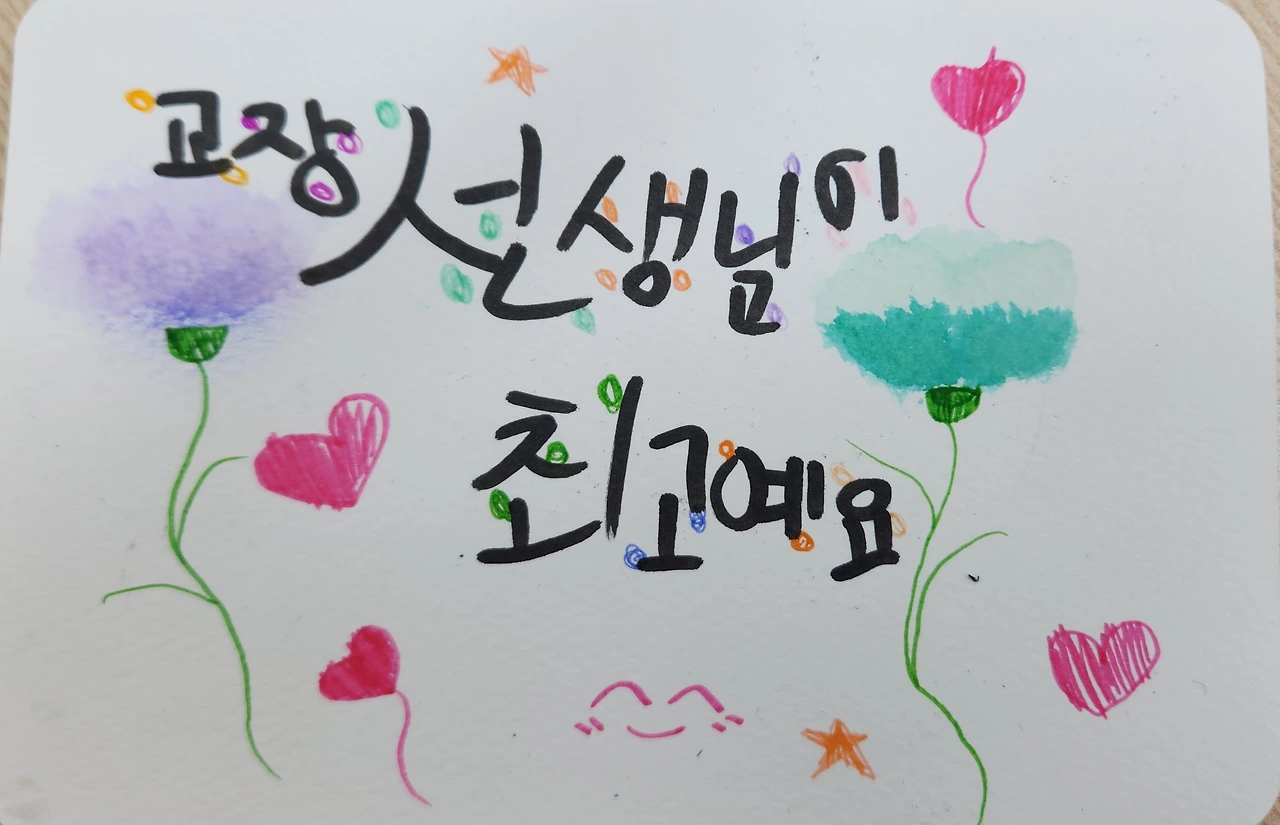 교장선생님이
최고예요